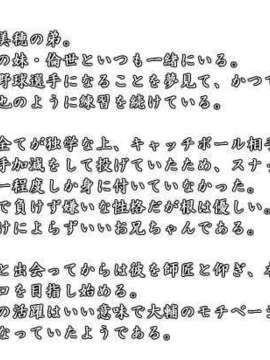 美穂の弟。
の妹・倫世といつも一緒にいる。
野球選手になることを夢見て、かつて
也のように練習を続けている。
全てが独学な上、キャッチボール相手
手加減をして投げていたため、スナッ
一程度しか身に付いていなかった。
で負けず嫌いな性格だが根は優しい。
けによらずいいお兄ちゃんである。
と出会ってからは彼を師匠と仰ぎ、本
ロを目指し始める。
の活躍はいい意味で大輔のモチベー
なっていたようである。